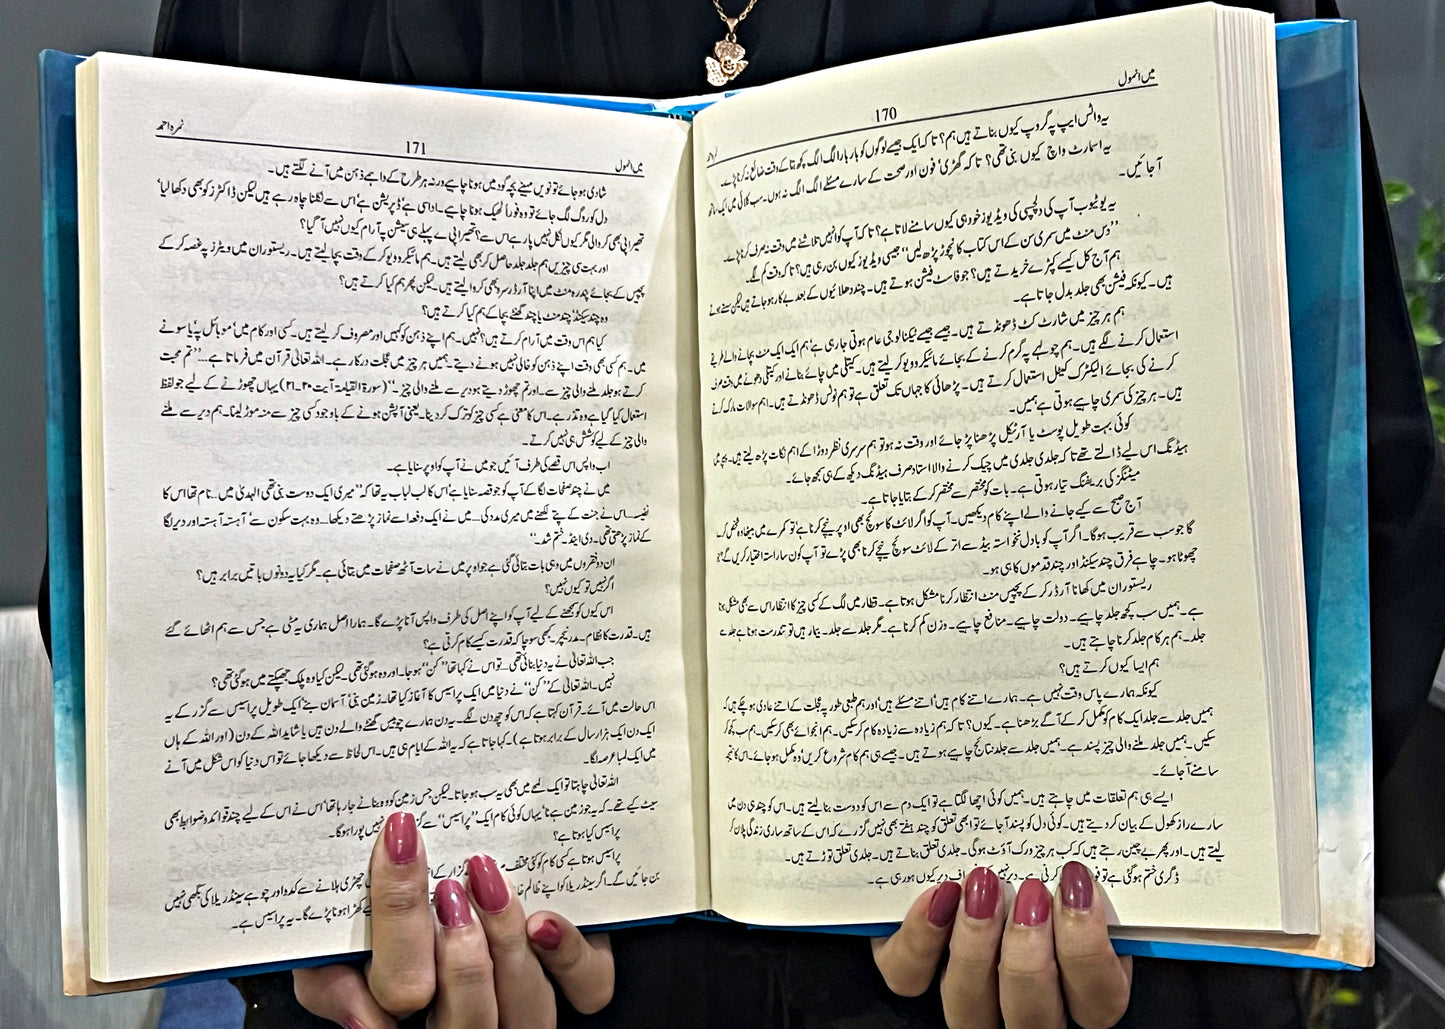 میں انمول
170
یہ واٹس ایپ پہ گروپ کیوں بناتے ہیں ہم؟ تاکہ ایک جیسے لوگوں کو بار بار الگ الگ کچھ بتا کے وقت ضائع نہ کرنا پڑے۔
یہ اسمارٹ واچ کیوں بنی تھی؟ تاکہ گھڑی' فون اور صحت کے سارے مسئلے الگ الگ نہ ہوں۔ سب کلائی میں ایک ساتھ
آ جائیں۔
یہ یوٹیوب آپ کی دلچسپی کی ویڈیوز خود ہی کیوں سامنے لاتا ہے؟ تاکہ آپ کو انہیں تلاشنے میں وقت نہ صرف کرنا پڑے۔
''دس منٹ میں سمری سن کے اس کتاب کا نچوڑ پڑھ لیں'' جیسی ویڈیوز کیوں بن رہی ہیں؟ تاکہ وقت کم لگے۔
ہم آج کل کیسے کپڑے خریدتے ہیں؟ جو فاسٹ فیشن ہوتے ہیں۔ چند دھلائیوں کے بعد بے کار ہو جاتے ہیں لیکن سستے ہوتے
ہیں۔ کیونکہ فیشن بھی جلد بدل جاتا ہے۔
ہم ہر چیز میں شارٹ کٹ ڈھونڈتے ہیں۔ جیسے جیسے ٹیکنالوجی عام ہوتی جا رہی ہے' ہم ایک ایک منٹ بچانے والے طریقے
استعمال کرنے لگے ہیں۔ ہم چولہے پہ گرم کرنے کے بجائے مائیکرو ویو کر لیتے ہیں۔ کیتلی میں چائے بنانے اور کیتلی دھونے میں وقت صرف
کرنے کی بجائے الیکٹرک کیٹل استعمال کرتے ہیں۔ پڑھائی کا جہاں تک تعلق ہے تو ہم نوٹس ڈھونڈتے ہیں۔ اہم سوالات مارک کرتے
ہیں۔ ہر چیز کی سمری چاہیے ہوتی ہے ہمیں۔
کوئی بہت طویل پوسٹ یا آرٹیکل پڑھنا پڑ جائے اور وقت نہ ہو تو ہم سرسری نظر دوڑا کے اہم نکات پڑھ لیتے ہیں۔
ہیڈنگ اس لیے ڈالتے تھے تاکہ جلدی جلدی میں چیک کرنے والا استاد صرف ہیڈنگ دیکھ کے ہی سمجھ جائے۔
میٹنگز کی بریفنگ تیار ہوتی ہے۔ بات کو مختصر سے مختصر کر کے بتایا جاتا ہے۔
آج صبح سے کیے جانے والے اپنے کام دیکھیں۔ آپ کو اگر لائٹ کا سوئچ بھی اوپر نیچے کرنا ہے' تو کمرے میں بیٹھا وہ شخص کرے
گا جو سب سے قریب ہوگا۔ اگر آپ کو بادل نخواستہ بیڈ سے اتر کے لائٹ سوئچ نیچے کرنا بھی پڑے تو آپ کون سا راستہ اختیار کریں گے؟
چھوٹا ہو۔ چاہے فرق چند سیکنڈ اور چند قدموں کا ہی ہو۔
ریسٹوران میں کھانا آرڈر کر کے پچیس منٹ انتظار کرنا مشکل ہوتا ہے۔ قطار میں لگ کے کسی چیز کا انتظار اس سے بھی مشکل ہوتا
ہے۔ ہمیں سب کچھ جلد چاہیے۔ دولت چاہیے۔ منافع چاہیے۔ وزن کم کرنا ہے۔ مگر جلد سے جلد۔ بیمار ہیں تو تندرست ہونا ہے جلد سے
جلد۔ ہم ہر کام جلد کرنا چاہتے ہیں۔
ہم ایسا کیوں کرتے ہیں؟
کیونکہ ہمارے پاس وقت نہیں ہے۔ ہمارے اتنے کام ہیں' اتنے مسئلے ہیں' اور ہم طبعی طور پہ عجلت کے اتنے عادی ہو چکے ہیں کہ
ہمیں جلد سے جلد ایک کام کو مکمل کر کے آگے بڑھنا ہے۔ کیوں؟ تاکہ ہم زیادہ سے زیادہ کام کر سکیں۔ ہم انجوائے بھی کر سکیں۔ ہم سب کچھ کر
سکیں۔ ہمیں جلد ملنے والی چیز پسند ہے۔ ہمیں جلد سے جلد نتائج چاہیے ہوتے ہیں۔ جیسے ہی ہم کام شروع کریں' وہ مکمل ہو جائے۔ اس کا نتیجہ
سامنے آ جائے۔
ایسے ہی ہم تعلقات میں چاہتے ہیں۔ ہمیں کوئی اچھا لگتا ہے تو ایک دم سے اس کو دوست بنا لیتے ہیں۔ اس کو چند ہی دن میں
سارے راز کھول کے بیان کر دیتے ہیں۔ کوئی دل کو پسند آ جائے تو ابھی تعلق کو چند ہفتے بھی نہیں گزرے کہ اس کے ساتھ ساری زندگی پلان کر
لیتے ہیں۔ اور پھر بے چین رہتے ہیں کہ کب ہر چیز ورک آؤٹ ہوگی۔ جلدی تعلق بناتے ہیں۔ جلدی تعلق توڑتے ہیں۔
ڈگری ختم ہو گئی ہے تو کرنی ہے۔ دیر کیوں ہو رہی ہے۔
نمرہ احمد
171
میں انمول
شادی ہو جائے تو نویں مہینے بچہ گود میں ہونا چاہیے ورنہ ہر طرح کے واہمے ذہن میں آنے لگتے ہیں۔
دل کو روگ لگ جائے تو وہ فوراً ٹھیک ہونا چاہیے۔ اداسی ہے' ڈپریشن ہے' اس سے نکلنا چاہ رہے ہیں لیکن ڈاکٹرز کو بھی دکھا لیا'
تھیراپی بھی کروا لی مگر کیوں نکل نہیں پا رہے اس سے؟ تھیراپی کے پہلے ہی سیشن پہ آرام کیوں نہیں آ گیا؟
اور بہت سی چیزیں ہم جلد جلد حاصل کر بھی لیتے ہیں۔ ہم مائیکرو ویو کر کے وقت بچا لیتے ہیں۔ ریسٹوران میں ویٹرز پہ غصہ کر کے
پچیس کے بجائے پندرہ منٹ میں اپنا آرڈر سرو بھی کروا لیتے ہیں۔ لیکن پھر ہم کیا کرتے ہیں؟
وہ چند سیکنڈ' چند منٹ یا چند گھنٹے بچا کے ہم کیا کرتے ہیں؟
کیا ہم اس وقت میں آرام کرتے ہیں؟ نہیں۔ ہم اپنے ذہن کو کہیں اور مصروف کر لیتے ہیں۔ کسی اور کام میں' موبائل پہ یا سونے
میں۔ ہم کسی بھی وقت اپنے ذہن کو خالی نہیں ہونے دیتے۔ ہمیں ہر چیز میں عجلت درکار ہے۔ اللہ تعالیٰ قرآن میں فرماتا ہے... ''تم محبت
کرتے ہو جلد ملنے والی چیز سے۔ اور تم چھوڑ دیتے ہو دیر سے ملنے والی چیز۔'' (سورۃ القیامۃ آیت ۲۰۔۲۱) یہاں چھوڑنے کے لیے جو لفظ
استعمال کیا گیا ہے وہ تذر ہے۔ اس کا معنی ہے کسی چیز کو ترک کر دینا۔ یعنی آپشن ہونے کے باوجود کسی چیز سے منہ موڑ لینا۔ ہم دیر سے ملنے
والی چیز کے لیے کوشش ہی نہیں کرتے۔
اب واپس اس قصے کی طرف آئیں جو میں نے آپ کو اوپر سنایا ہے۔
میں نے چند صفحات لگا کے آپ کو جو قصہ سنایا ہے' اس کا لب لباب یہ تھا کہ ''میری ایک دوست بنی تھی الہدیٰ میں... نام تھا اس کا
نفیسہ... اس نے جنت کے پتے لکھنے میں میری مدد کی... میں نے ایک دفعہ اسے نماز پڑھتے دیکھا... وہ بہت سکون سے' آہستہ آہستہ اور دیر لگا
کے نماز پڑھتی تھی۔ دی اینڈ۔ ختم شد۔''
ان دو فقروں میں وہی بات بتائی گئی ہے جو اوپر میں نے سات آٹھ صفحات میں بتائی ہے۔ مگر کیا یہ دونوں باتیں برابر ہیں؟
اگر نہیں تو کیوں نہیں؟
اس کیوں کو سمجھنے کے لیے آپ کو اپنے اصل کی طرف واپس آنا پڑے گا۔ ہمارا اصل ہماری یہ مٹی ہے جس سے ہم اٹھائے گئے
ہیں۔ قدرت کا نظام۔ مدر نیچر۔ کبھی سوچا کہ قدرت کیسے کام کرتی ہے؟
جب اللہ تعالیٰ نے یہ دنیا بنائی تھی... تو اس نے کہا تھا ''کن'' ہو جا۔ اور وہ ہو گئی تھی۔ لیکن کیا وہ پلک جھپکتے میں ہو گئی تھی؟
نہیں۔ اللہ تعالیٰ کے ''کن'' نے دنیا میں ایک پراسیس کا آغاز کیا تھا۔ زمین بنی' آسمان بنے' ایک طویل پراسیس سے گزر کے یہ
اس حالت میں آئے۔ قرآن کہتا ہے کہ اس کو چھ دن لگے۔ یہ دن ہمارے چوبیس گھنٹے والے دن ہیں یا شاید اللہ کے دن (اور اللہ کے ہاں
ایک دن ایک ہزار سال کے برابر ہوتا ہے)۔ کہا جاتا ہے کہ یہ اللہ کے ایام ہی ہیں۔ اس لحاظ سے دیکھا جائے تو اس دنیا کو اس شکل میں آنے
میں ایک لمبا عرصہ لگا۔
اللہ تعالیٰ چاہتا تو ایک لمحے میں بھی یہ سب ہو جاتا۔ لیکن جس زمین کو وہ بنانے جا رہا تھا' اس نے اس کے لیے چند قوائد و ضوابط بھی
سیٹ کیے تھے۔ کہ یہ جو زمین ہے نا' یہاں کوئی کام ایک ''پراسیس'' سے نہیں پورا ہوگا۔
پراسیس کیا ہوتا ہے؟
پراسیس ہوتا ہے کسی کام کو کئی مختلف گزار کے چھڑی ہلانے سے کدو اور چوہے سینڈریلا کی بگھی نہیں
بن جائیں گے۔ اگر سینڈریلا کو اپنے ظالم کھڑا ہونا پڑے گا۔ یہ پراسیس ہے۔